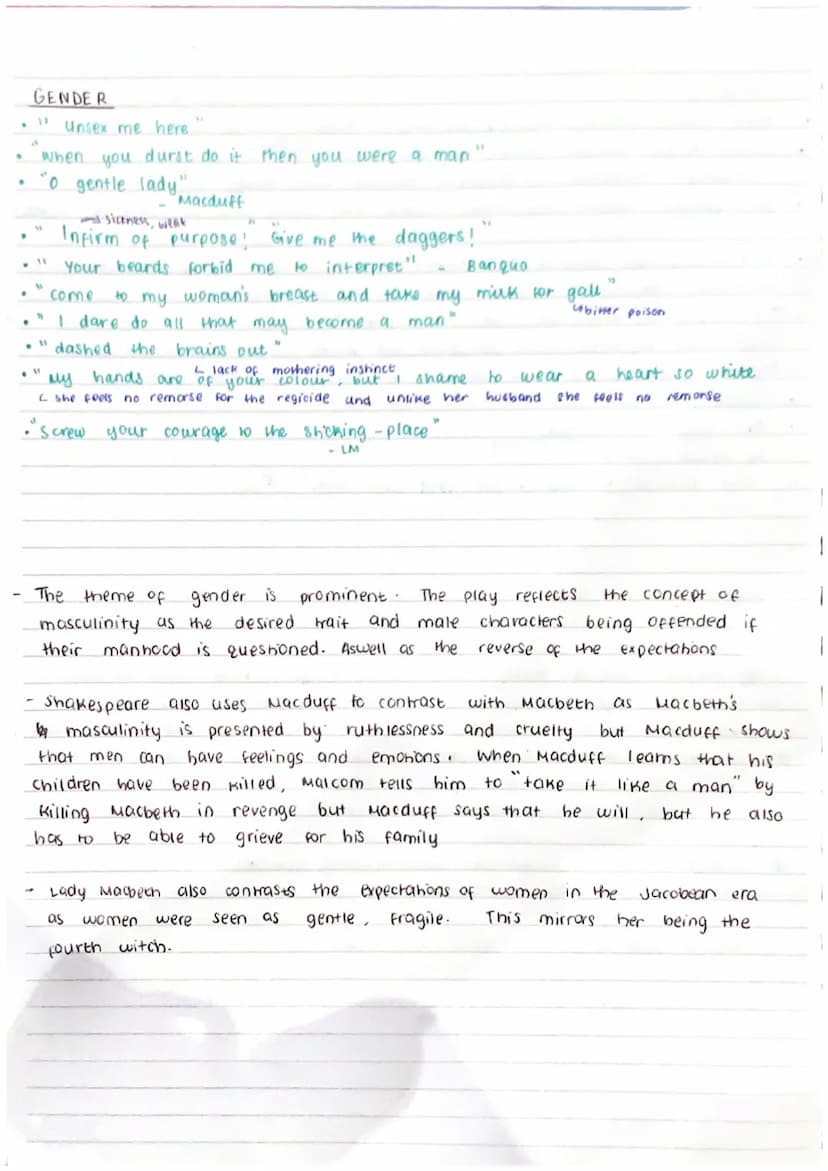 GENDER
• " Unsex me here "
• "when you durst do it then you were a man"
• "O gentle lady"
- Macduff
→ sickness, weak
• " Infirm of purpose! " Give me the daggers! "
• " your beards forbid me to interpret" - Banquo
• "come to my woman's breast and take my milk for gall "
↳ bitter poison
• " I dare do all that may become a man"
• " dashed the brains out "
↳ lack of mothering instinct
• "My hands are of your colour, but I shame to wear a heart so white
↳ she feels no remorse for the regicide and unlike her husband she feels no remorse
• "Screw your courage to the sticking-place"
- LM
- The theme of gender is prominent. The play reflects the concept of
masculinity as the desired trait and male characters being offended if
their manhood is questioned. Aswell as the reverse of the expectations
- Shakespeare also uses Macduff to contrast with Macbeth as Macbeth's
masculinity is presented by ruthlessness and cruelty but Macduff shows
that men can have feelings and emotions. When Macduff learns that his
children have been killed, Malcom tells him to "take it like a man" by
killing Macbeth in revenge but Macduff says that he will, but he also
has to be able to grieve for his family
- Lady Macbeth also contrasts the expectations of women in the Jacobean era
as women were seen as gentle, fragile. This mirrors her being the
fourth witch.